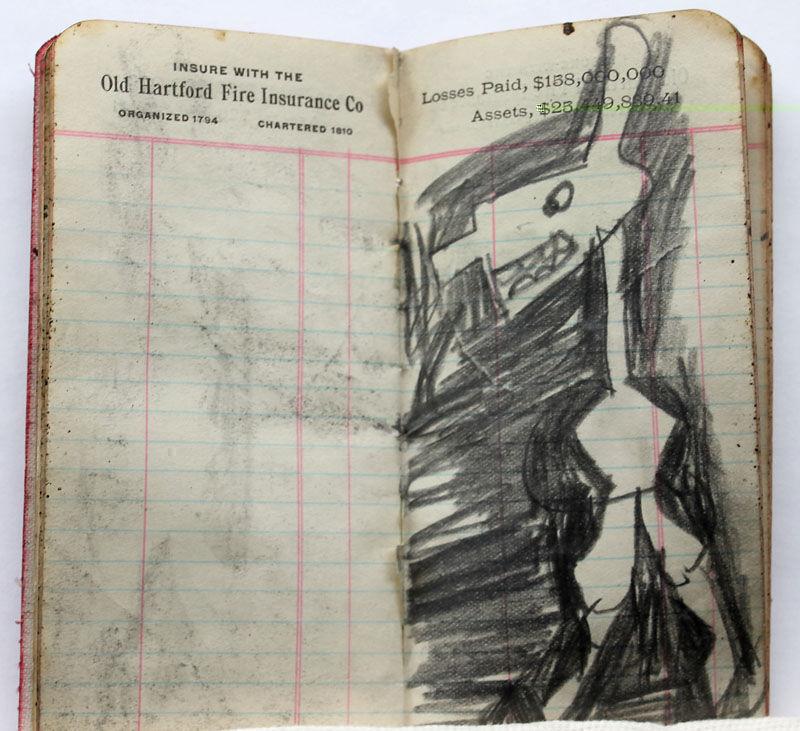 INSURE WITH THE
Old Hartford Fire Insurance Co
ORGANIZED 1794 CHARTERED 1810
Losses Paid, $158,000,000
Assets,